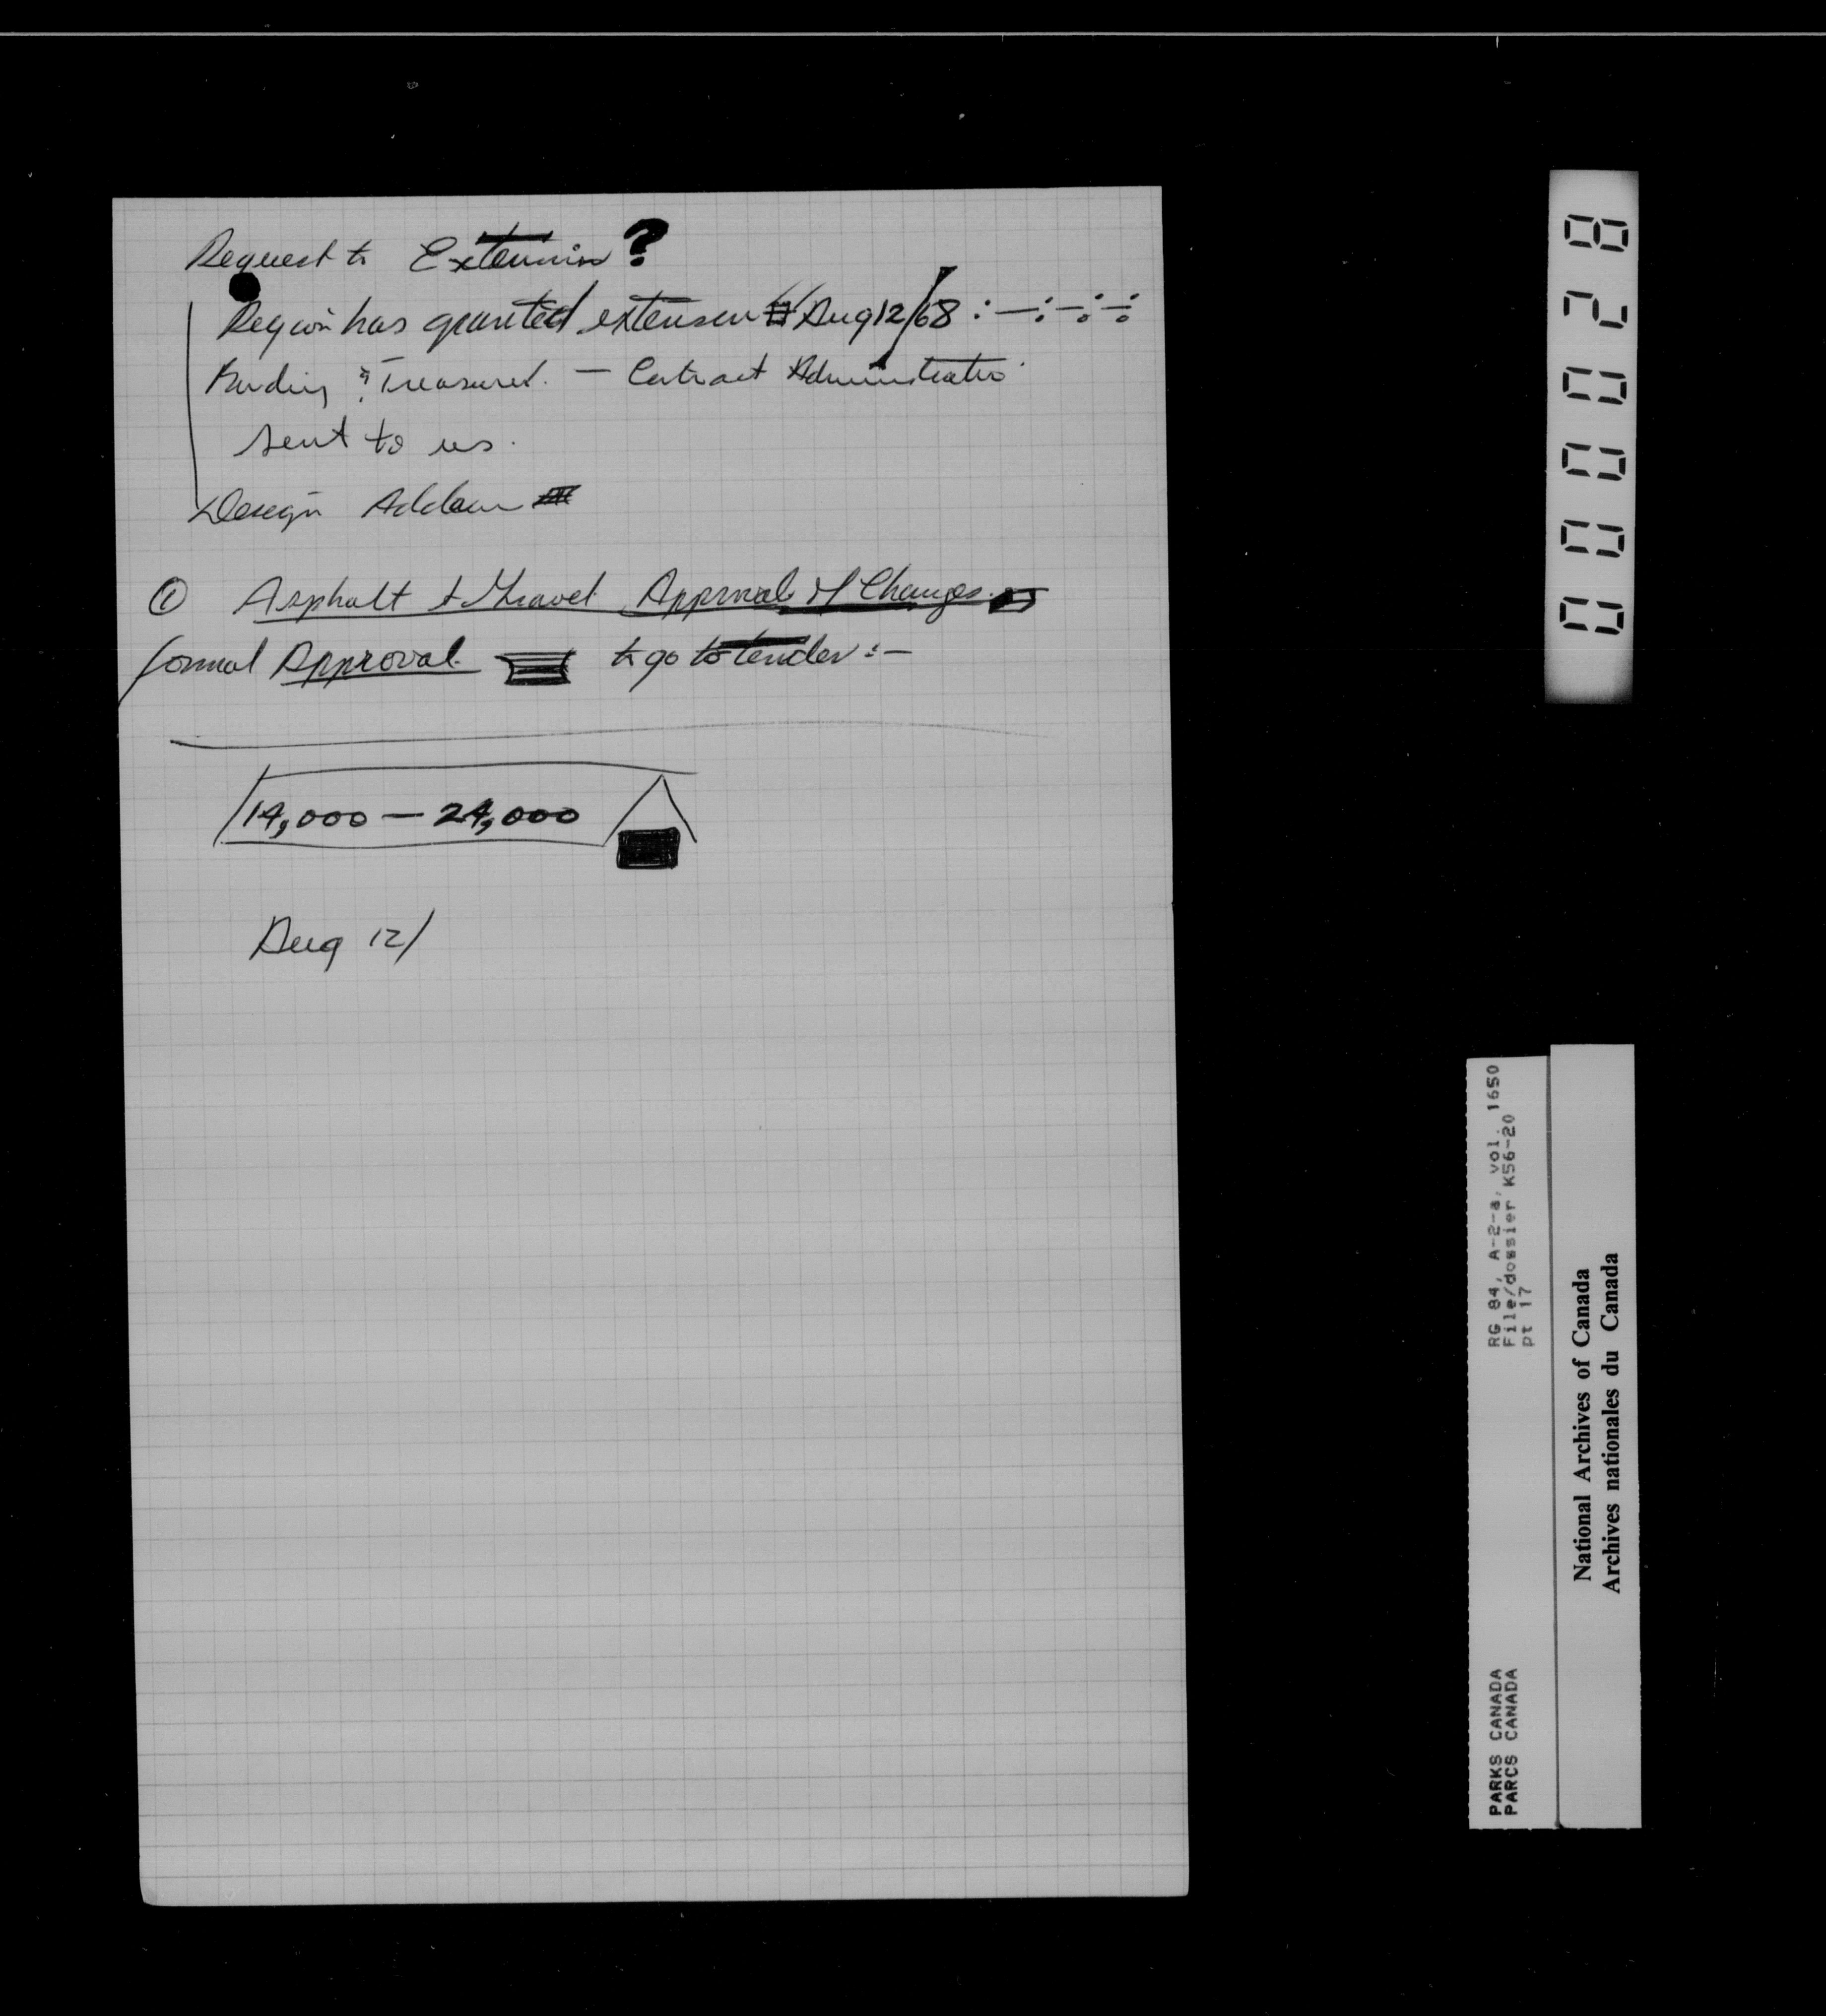 Request to Extension?
Region has granted extension Aug 12/68 : — : — : — :
Funding & Treasurer. — Contract Administration
sent to us.
Design
① Asphalt & Gravel Approval of Changes.
formal Approval to go to tender :—
14,000 — 24,000
Aug 12/
000028
RG 84, A-2-a, vol. 1650
File/dossier K56-20
pt 17
PARKS CANADA
PARCS CANADA
National Archives of Canada
Archives nationales du Canada